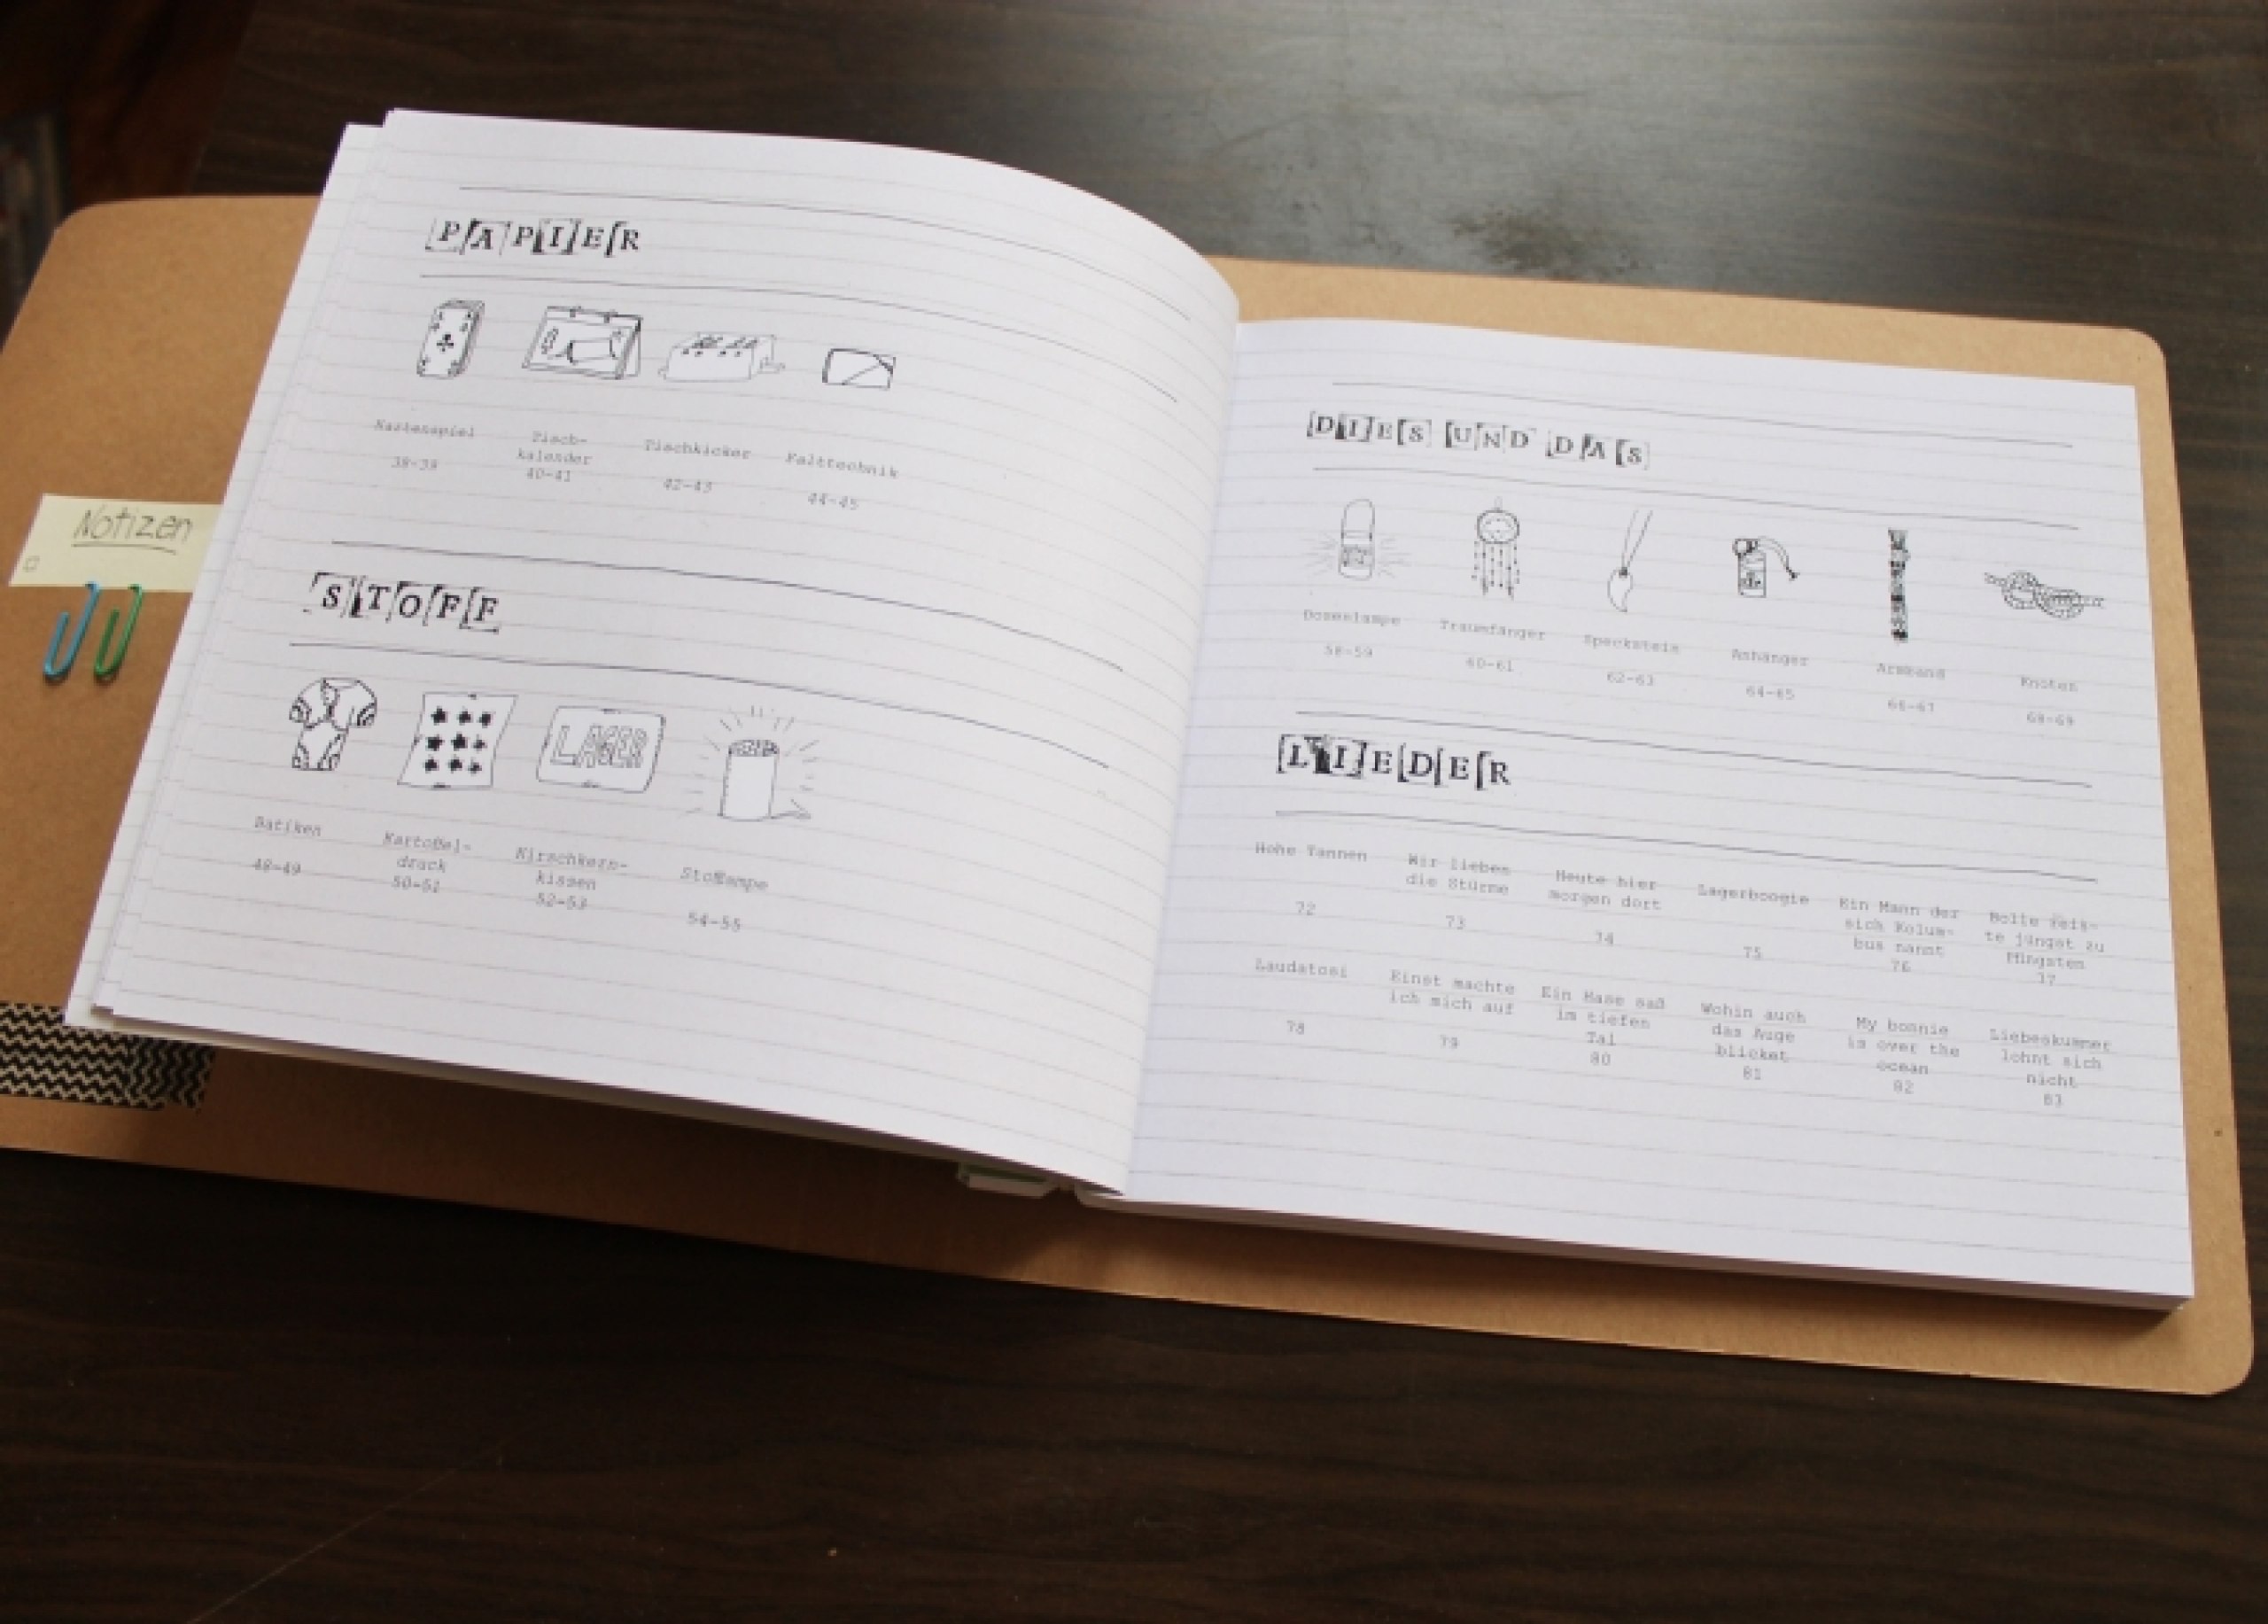 Notizen
PAPIER
Kartenspiel
38-39
Tisch-
kalender
40-41
Tischkicker
42-43
Falttechnik
44-45
STOFF
Batiken
48-49
Kartoffel-
druck
50-51
LAGER
Kirschkern-
kissen
52-53
Stofflampe
54-55
DIES UND DAS
Dosenlampe
58-59
Traumfänger
60-61
Speckstein
62-63
Anhänger
64-65
Armband
66-67
Knoten
68-69
LIEDER
Hohe Tannen
72
Wir lieben
die Stürme
73
Heute hier
morgen dort
74
Lagerboogie
75
Ein Mann der
sich Kolum-
bus nannt
76
Bolte reis-
te jüngst zu
Pfingsten
77
Laudatosi
78
Einst machte
ich mich auf
79
Ein Hase saß
im tiefen
Tal
80
Wohin auch
das Auge
blicket
81
My bonnie
is over the
ocean
82
Liebeskummer
lohnt sich
nicht
83